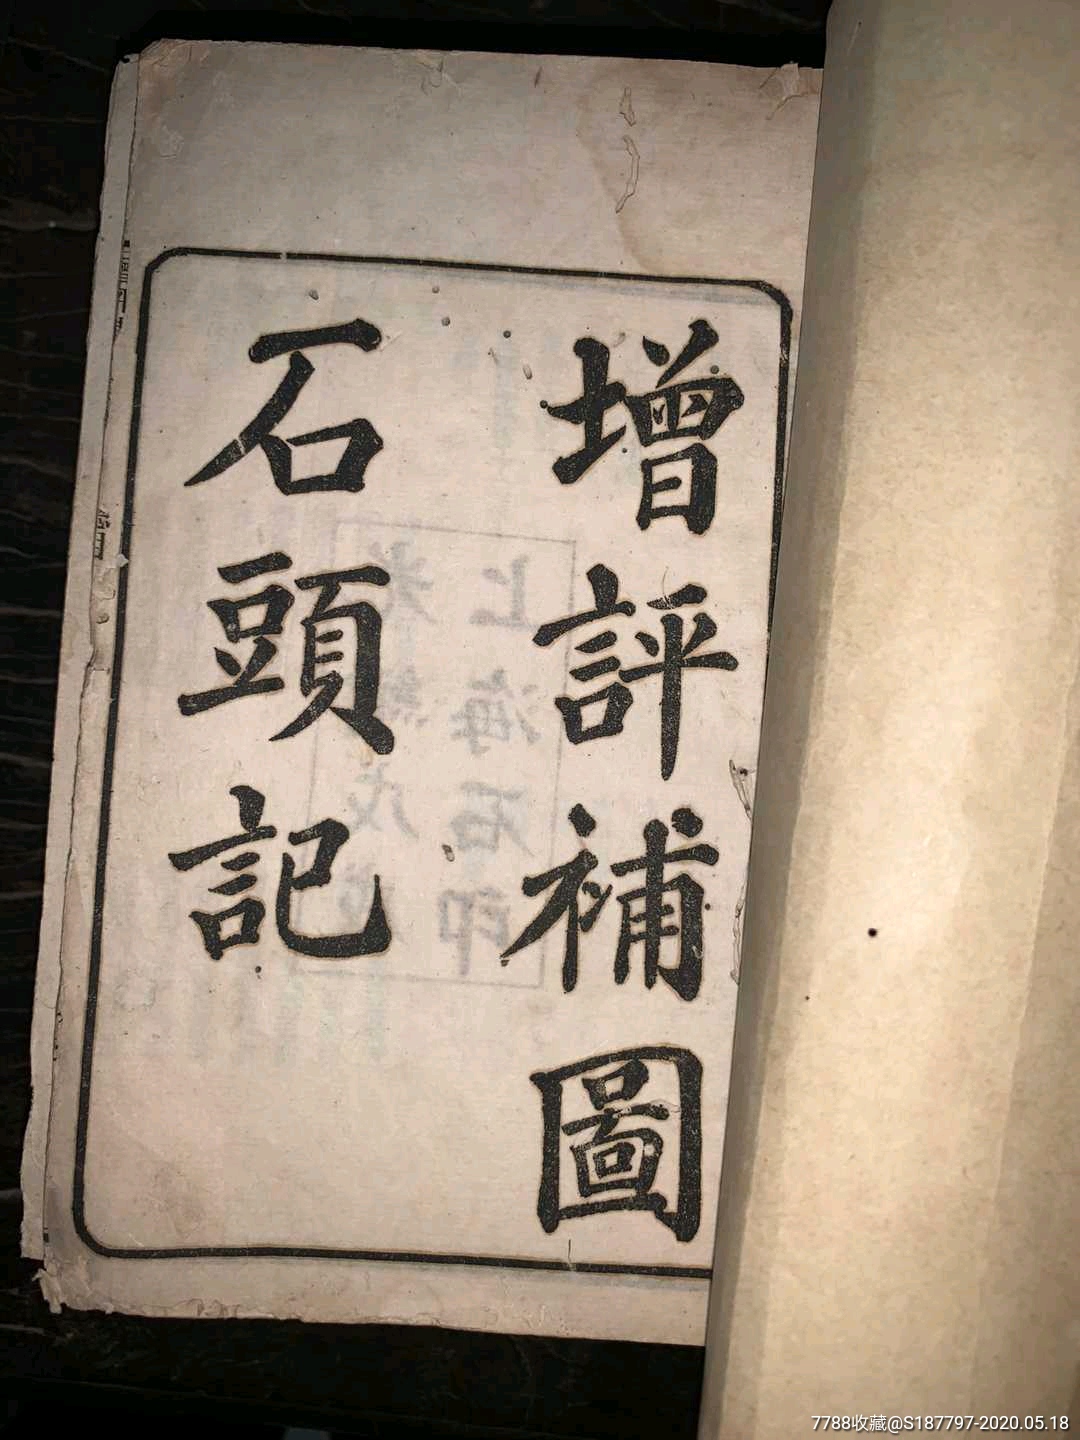 增評補圖
石頭記
上海石印
光緒戊戌
7788收藏@S187797-2020.05.18